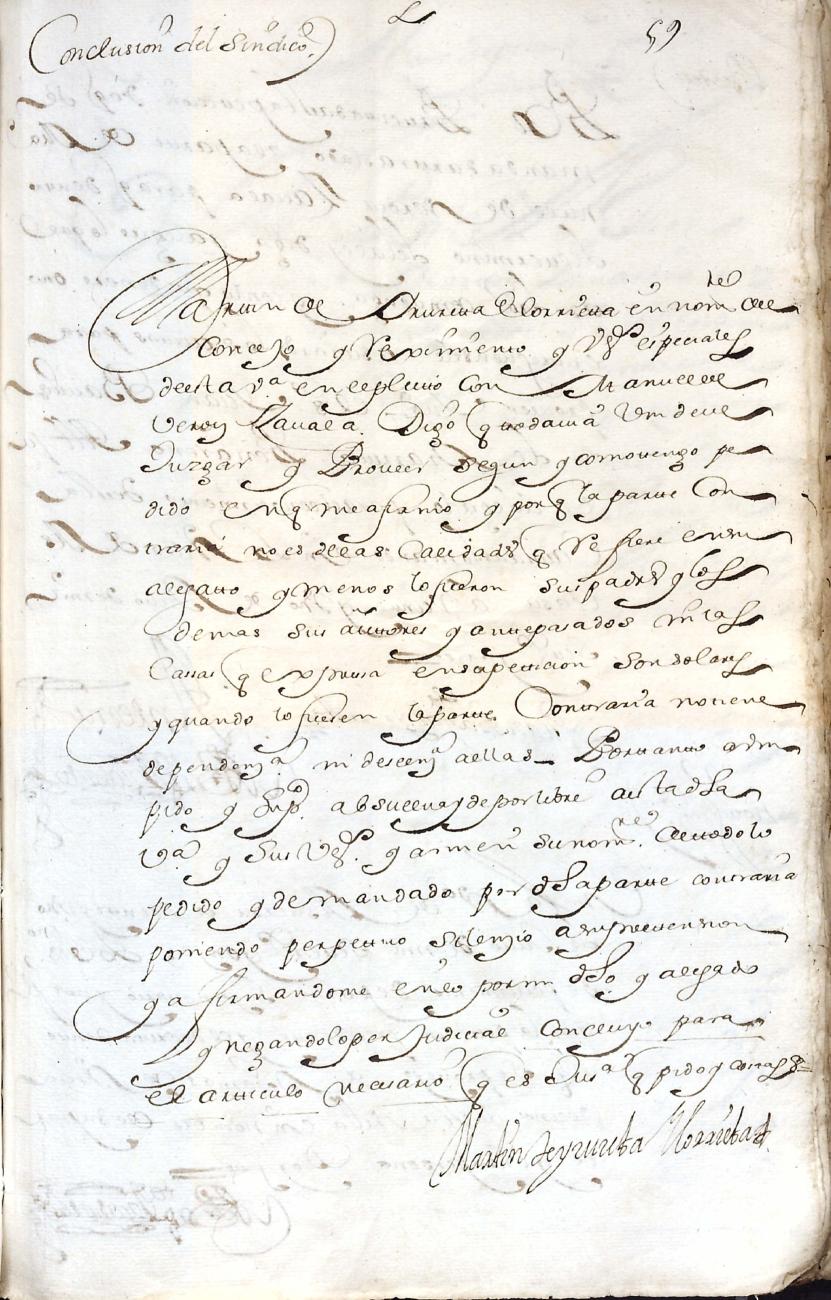 Conclusion del Sindico.
59
Martin de Yrurita Elorrieta en nomre. del
Concejo y Reximiento y Vs. espeçiales
de esta va. en el pleito con Manuel de
Veroiz Zavala. Digo q todavia Vm deve
Juzgar y Proveer segun y como tengo pe
dido en q me afirmo y por q la parte con
traria no es de las Calidades q refiere en su
alegatto y menos lo fueron sus padres y los
demas sus auttores y antepasados ni las
Casas q expresa en su peticion son solares
y quando lo fuesen la parte. Conttraria no tiene
dependenza. ni descenza. a ellas. Por tanto a Vm
pido y supco. absuelva y de por libre a esta dha
va. y sus Vs. y a mi en su nomre. de todo lo
pedido y demandado por dha parte contraria
poniendo perpetuo silenzio a su pretension
y afirmandome en lo por mi dho. y alegado
y negando lo perjudicial Concluyo para
el articulo necesario q es Justa. q pido y costas &=
Martin de yrurita Elorrieta